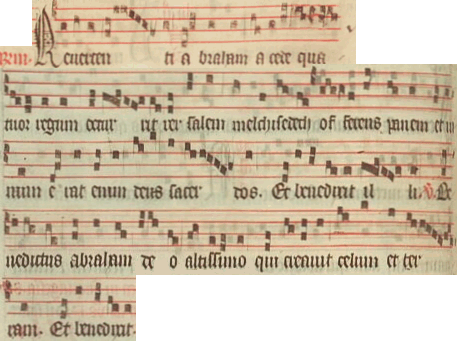 Reuerten ti a braham a cede qua
tuor regum occur rit rex salem melchisedech of ferens panem et ui
num e rat enim deus sacer dos. Et benedixit il li. V. Be
nedictus abraham de o altissimo qui creauit celum et ter
ram. Et benedixit.